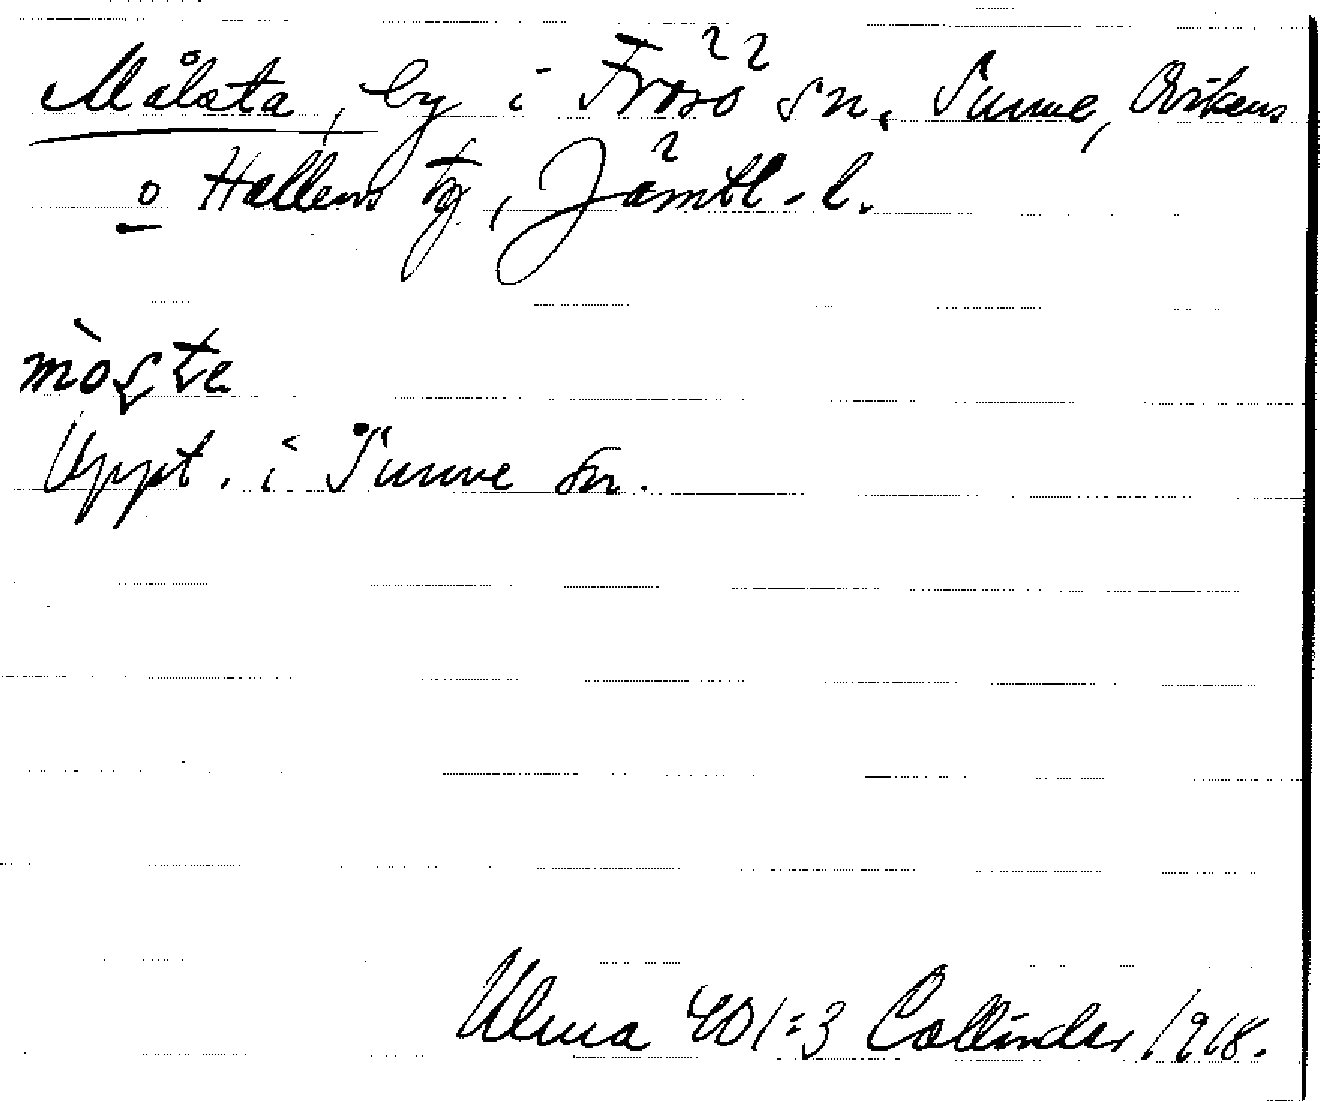 Målsta, by i Frösö sn, Sunne, Ovikens
o Hallens tg, Jämtl. l.
mòʂʈe
Uppt. i Sunne sn.
Ulma 401:3 Collinder 1918.